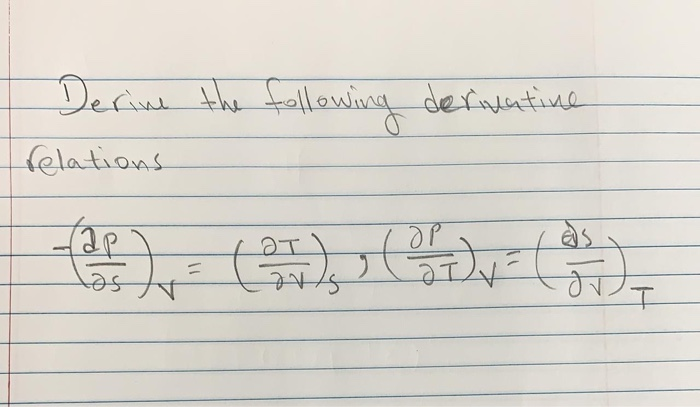 Derive the following derivative
relations
-(∂P/∂S)_V = (∂T/∂V)_S , (∂P/∂T)_V = (∂S/∂V)_T